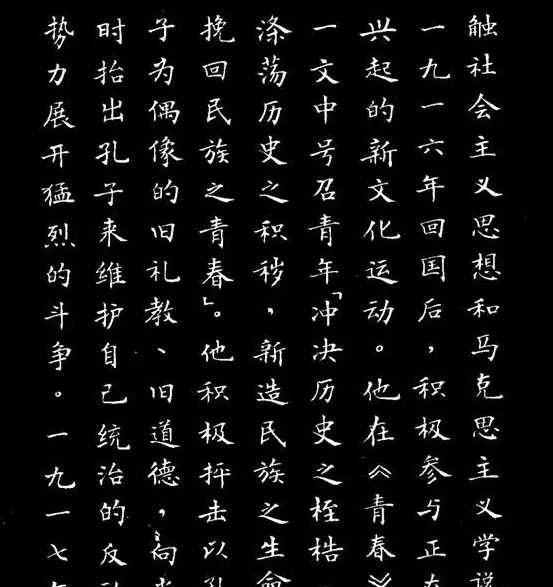 触社会主义思想和马克思主义学说
一九一六年回国后，积极参与正在
兴起的新文化运动。他在《青春》
一文中号召青年「冲决历史之桎梏
涤荡历史之积秽，新造民族之生命
挽回民族之青春」。他积极抨击以孔
子为偶像的旧礼教、旧道德，向当
时抬出孔子来维护自己统治的反动
势力展开猛烈的斗争。一九一七年